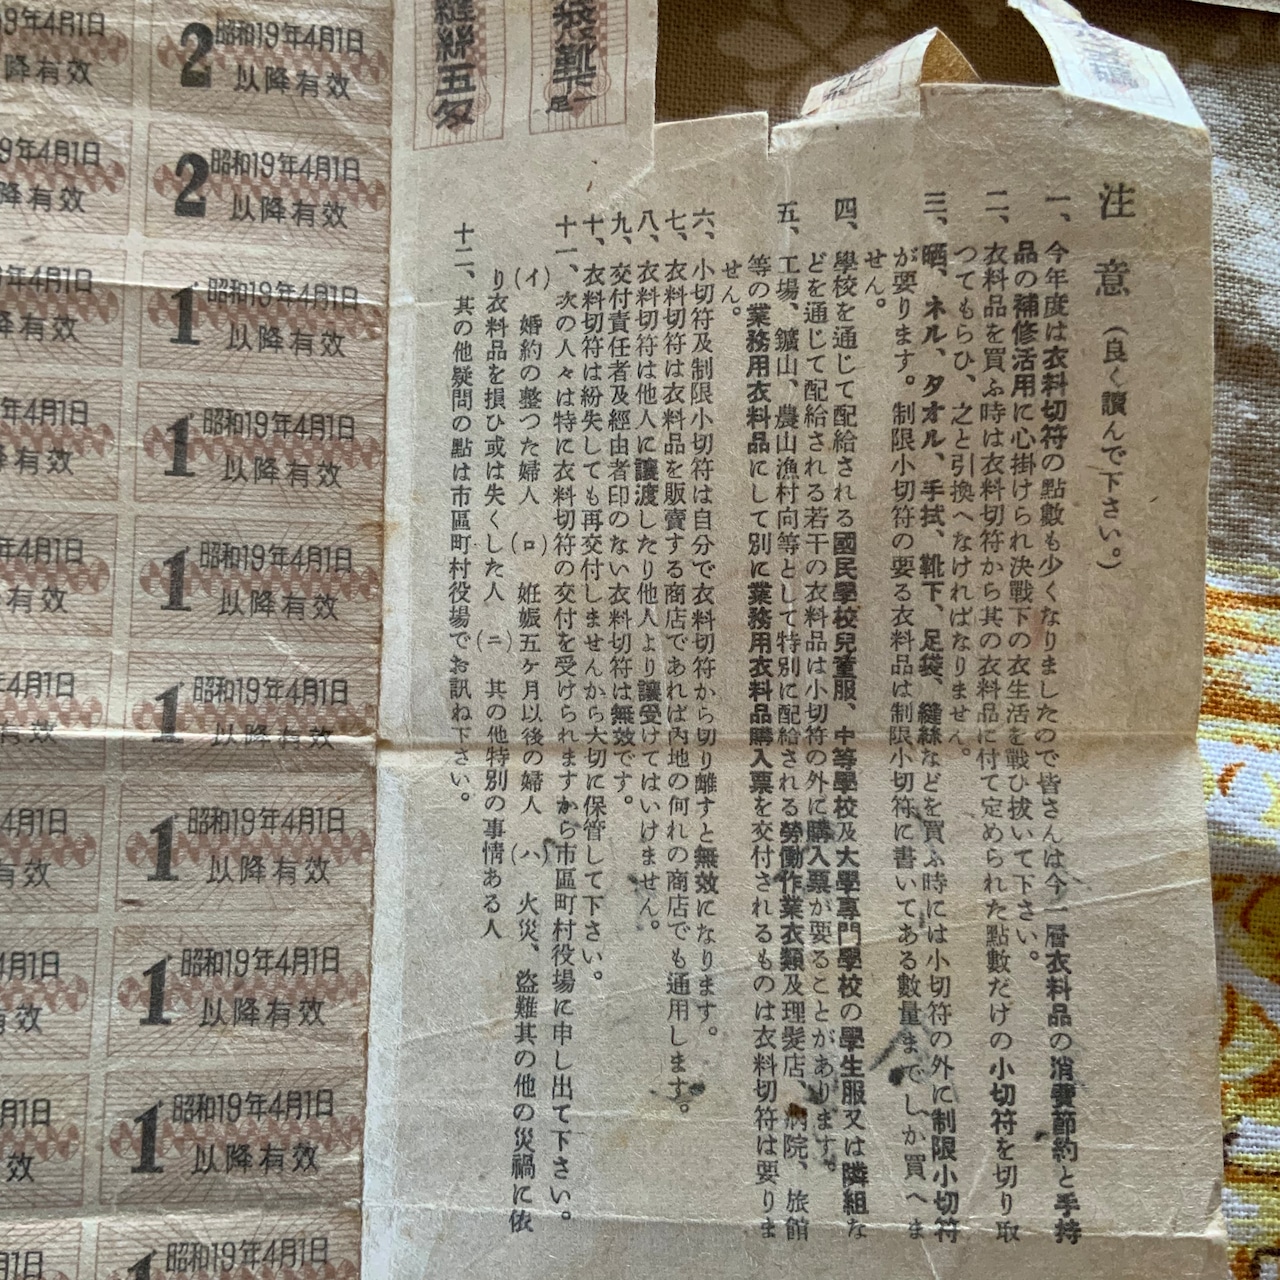 注意(良く讀んで下さい。)
一、今年度は衣料切符の點數も少くなりましたので皆さんは今一層衣料品の消費節約と手持
品の補修活用に心掛けられ決戰下の衣生活を戰ひ拔いて下さい。
二、衣料品を買ふ時は衣料切符から其の衣料品に付て定められた點數だけの小切符を切り取
つてもらひ、之と引換へなければなりません。
三、晒、ネル、タオル、手拭、靴下、足袋、縫絲などを買ふ時には小切符の外に制限小切符
が要ります。制限小切符の要る衣料品は制限小切符に書いてある數量までしか買へま
せん。
四、學校を通じて配給される國民學校兒童服、中等學校及大學專門學校の學生服又は隣組な
どを通じて配給される若干の衣料品は小切符の外に購入票が要ることがあります。
五、工場、鑛山、農山漁村向等として特別に配給される勞働作業衣類及理髮店、病院、旅館
等の業務用衣料品にして別に業務用衣料品購入票を交付されるものは衣料切符は要りま
せん。
六、小切符及制限小切符は自分で衣料切符から切り離すと無效になります。
七、衣料切符は衣料品を販賣する商店であれば內地の何れの商店でも通用します。
八、衣料切符は他人に讓渡したり他人より讓受けてはいけません。
九、交付責任者及經由者印のない衣料切符は無效です。
十、衣料切符は紛失しても再交付しませんから大切に保管して下さい。
十一、次の人々は特に衣料切符の交付を受けられますから市區町村役場に申し出て下さい。
(イ) 婚約の整つた婦人 (ロ) 姙娠五ケ月以後の婦人 (ハ) 火災、盜難其の他の災禍に依
り衣料品を損ひ或は失くした人 (ニ) 其の他特別の事情ある人
十二、其の他疑問の點は市區町村役場でお訊ね下さい。
袋靴下
一足
縫絲五匁
2 昭和19年4月1日
以降有效
2 昭和19年4月1日
以降有效
1 昭和19年4月1日
以降有效
1 昭和19年4月1日
以降有效
1 昭和19年4月1日
以降有效
1 昭和19年4月1日
以降有效
1 昭和19年4月1日
以降有效
1 昭和19年4月1日
以降有效
1 昭和19年4月1日
以降有效
1 昭和19年4月1日
9年4月1日
降有效
9年4月1日
有效
9年4月1日
有效
年4月1日
有效
年4月1日
有效
年4月1日
有效
4月1日
有效
4月1日
有效
月1日
效
月1日